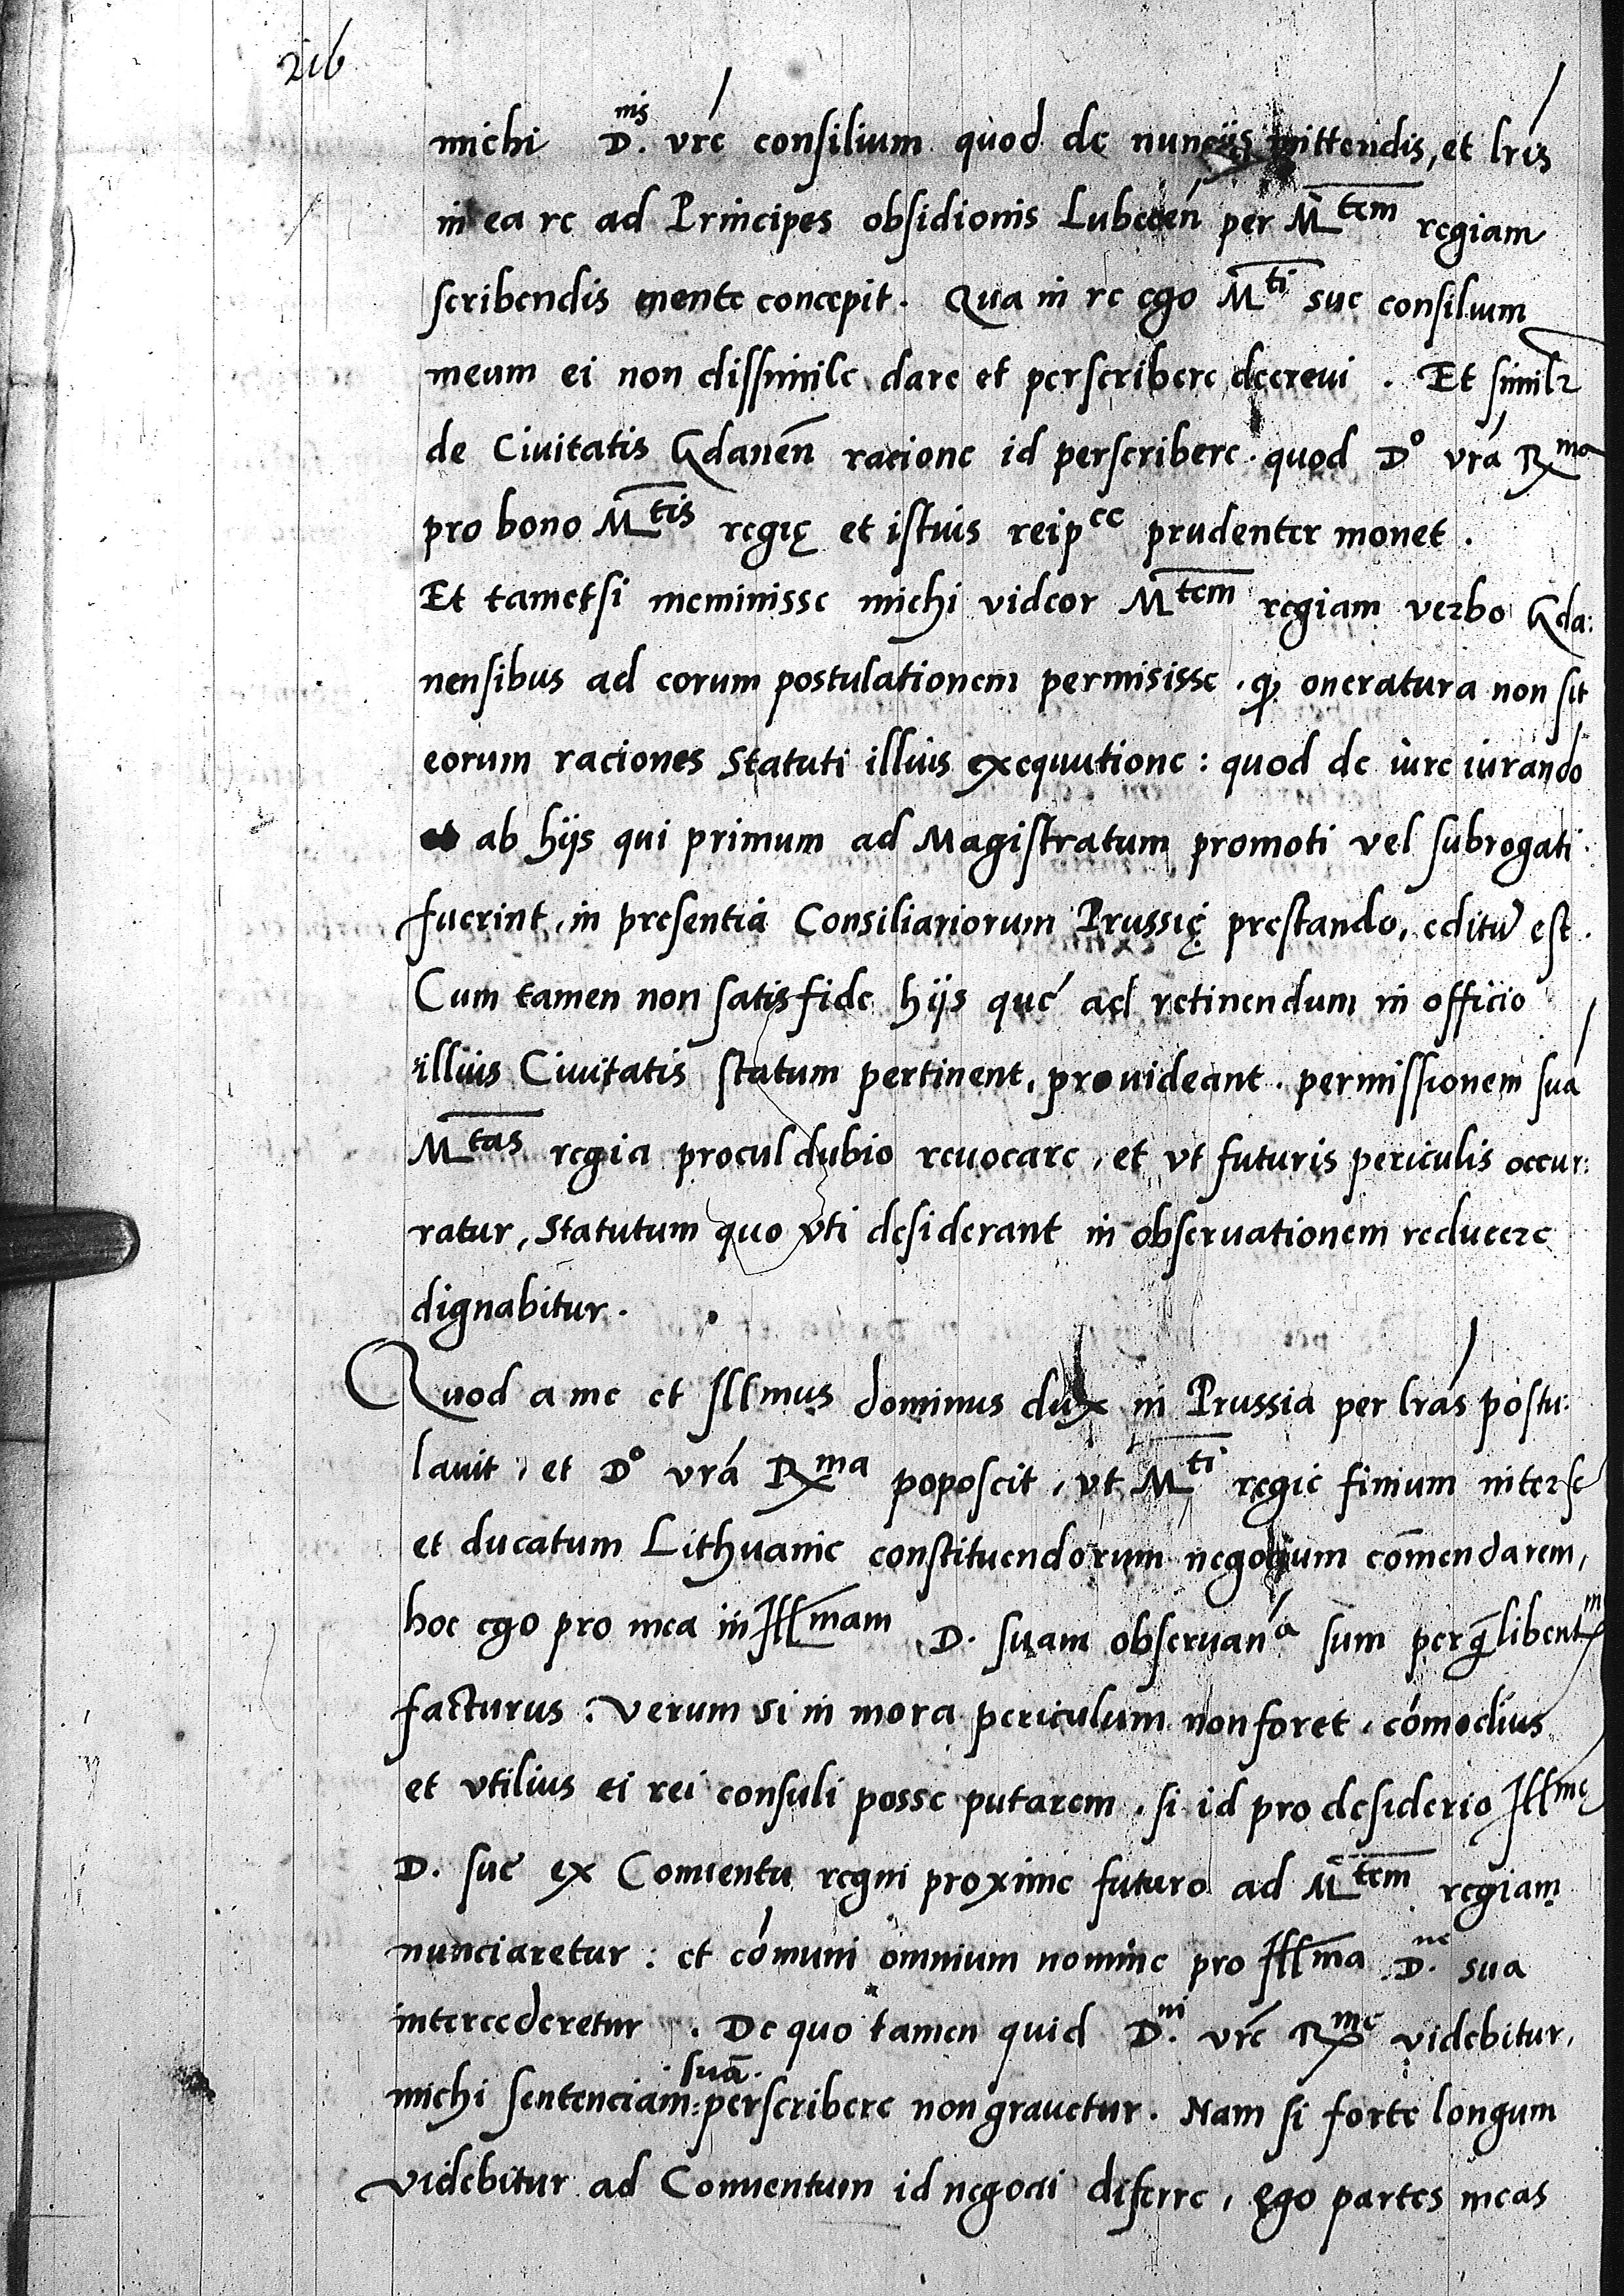 216
michi D.nis vrę consilium quod de nuncijs mittendis, et lris
in ea re ad Principes obsidionis Lubecen̄ per Mtem regiam
scribendis mente concepit. Qua in re ego Mti sue consilium
meum ei non dissimile dare et perscribere decrevi. Et similr
de Ciuitatis Gdanen̄ racione id perscribere. quod Do vrá Rma
pro bono Mtis regię et istius reipce prudenter monet.
Et tametsi meminisse michi videor Mtem regiam verbo Gda:
nensibus ad eorum postulationem permisisse. q oneratura non sit
eorum raciones Statuti illius exequutione: quod de iure iurando
ab hijs qui primum ad Magistratum promoti vel subrogati
fuerint, in presentia Consiliariorum Prussię prestando, editū est.
Cum tamen non satis fide hijs que ad retinendum in officio
illius Ciuitatis statum pertinent, prouideant. permissionem suá
Mtas regia procul dubio reuocare, et vt futuris periculis occur:
ratur, Statutum quo vti desiderant in observationem reducere
dignabitur.
Quod a me et Illmus dominus dux in Prussia per lrás postu:
lauit, et Do vrá Rma poposcit, vt Mti regie finium inter se
et ducatum Lithuanie constituendorum negocium com̄endarem,
hoc ego pro mea in Illmam D. suam obseruana sum perq̄ libentm
facturus. Verum si in mora periculum non foret, com̄odius
et vtilius ei rei consuli posse putarem, si id pro desiderio Illmę
D. sue ex Conuentu regni proxime futuro ad Mtem regiam
nunciaretur: et com̄uni omnium nomine pro Illma D.ne sua
intercederetur. De quo tamen quid D.ni vrę Rme videbitur,
michi sentenciam suā perscribere non grauetur. Nam si forte longum
videbitur ad Conuentum id negocii diferre, ego partes meas